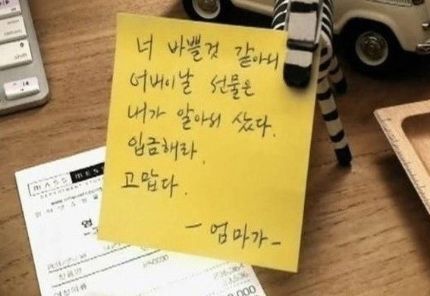 너 바쁠것 같아서
어버이날 선물은
내가 알아서 샀다.
입금해라.
고맙다.
- 엄마가 -
MASS MES
DEPARTMENT STOR